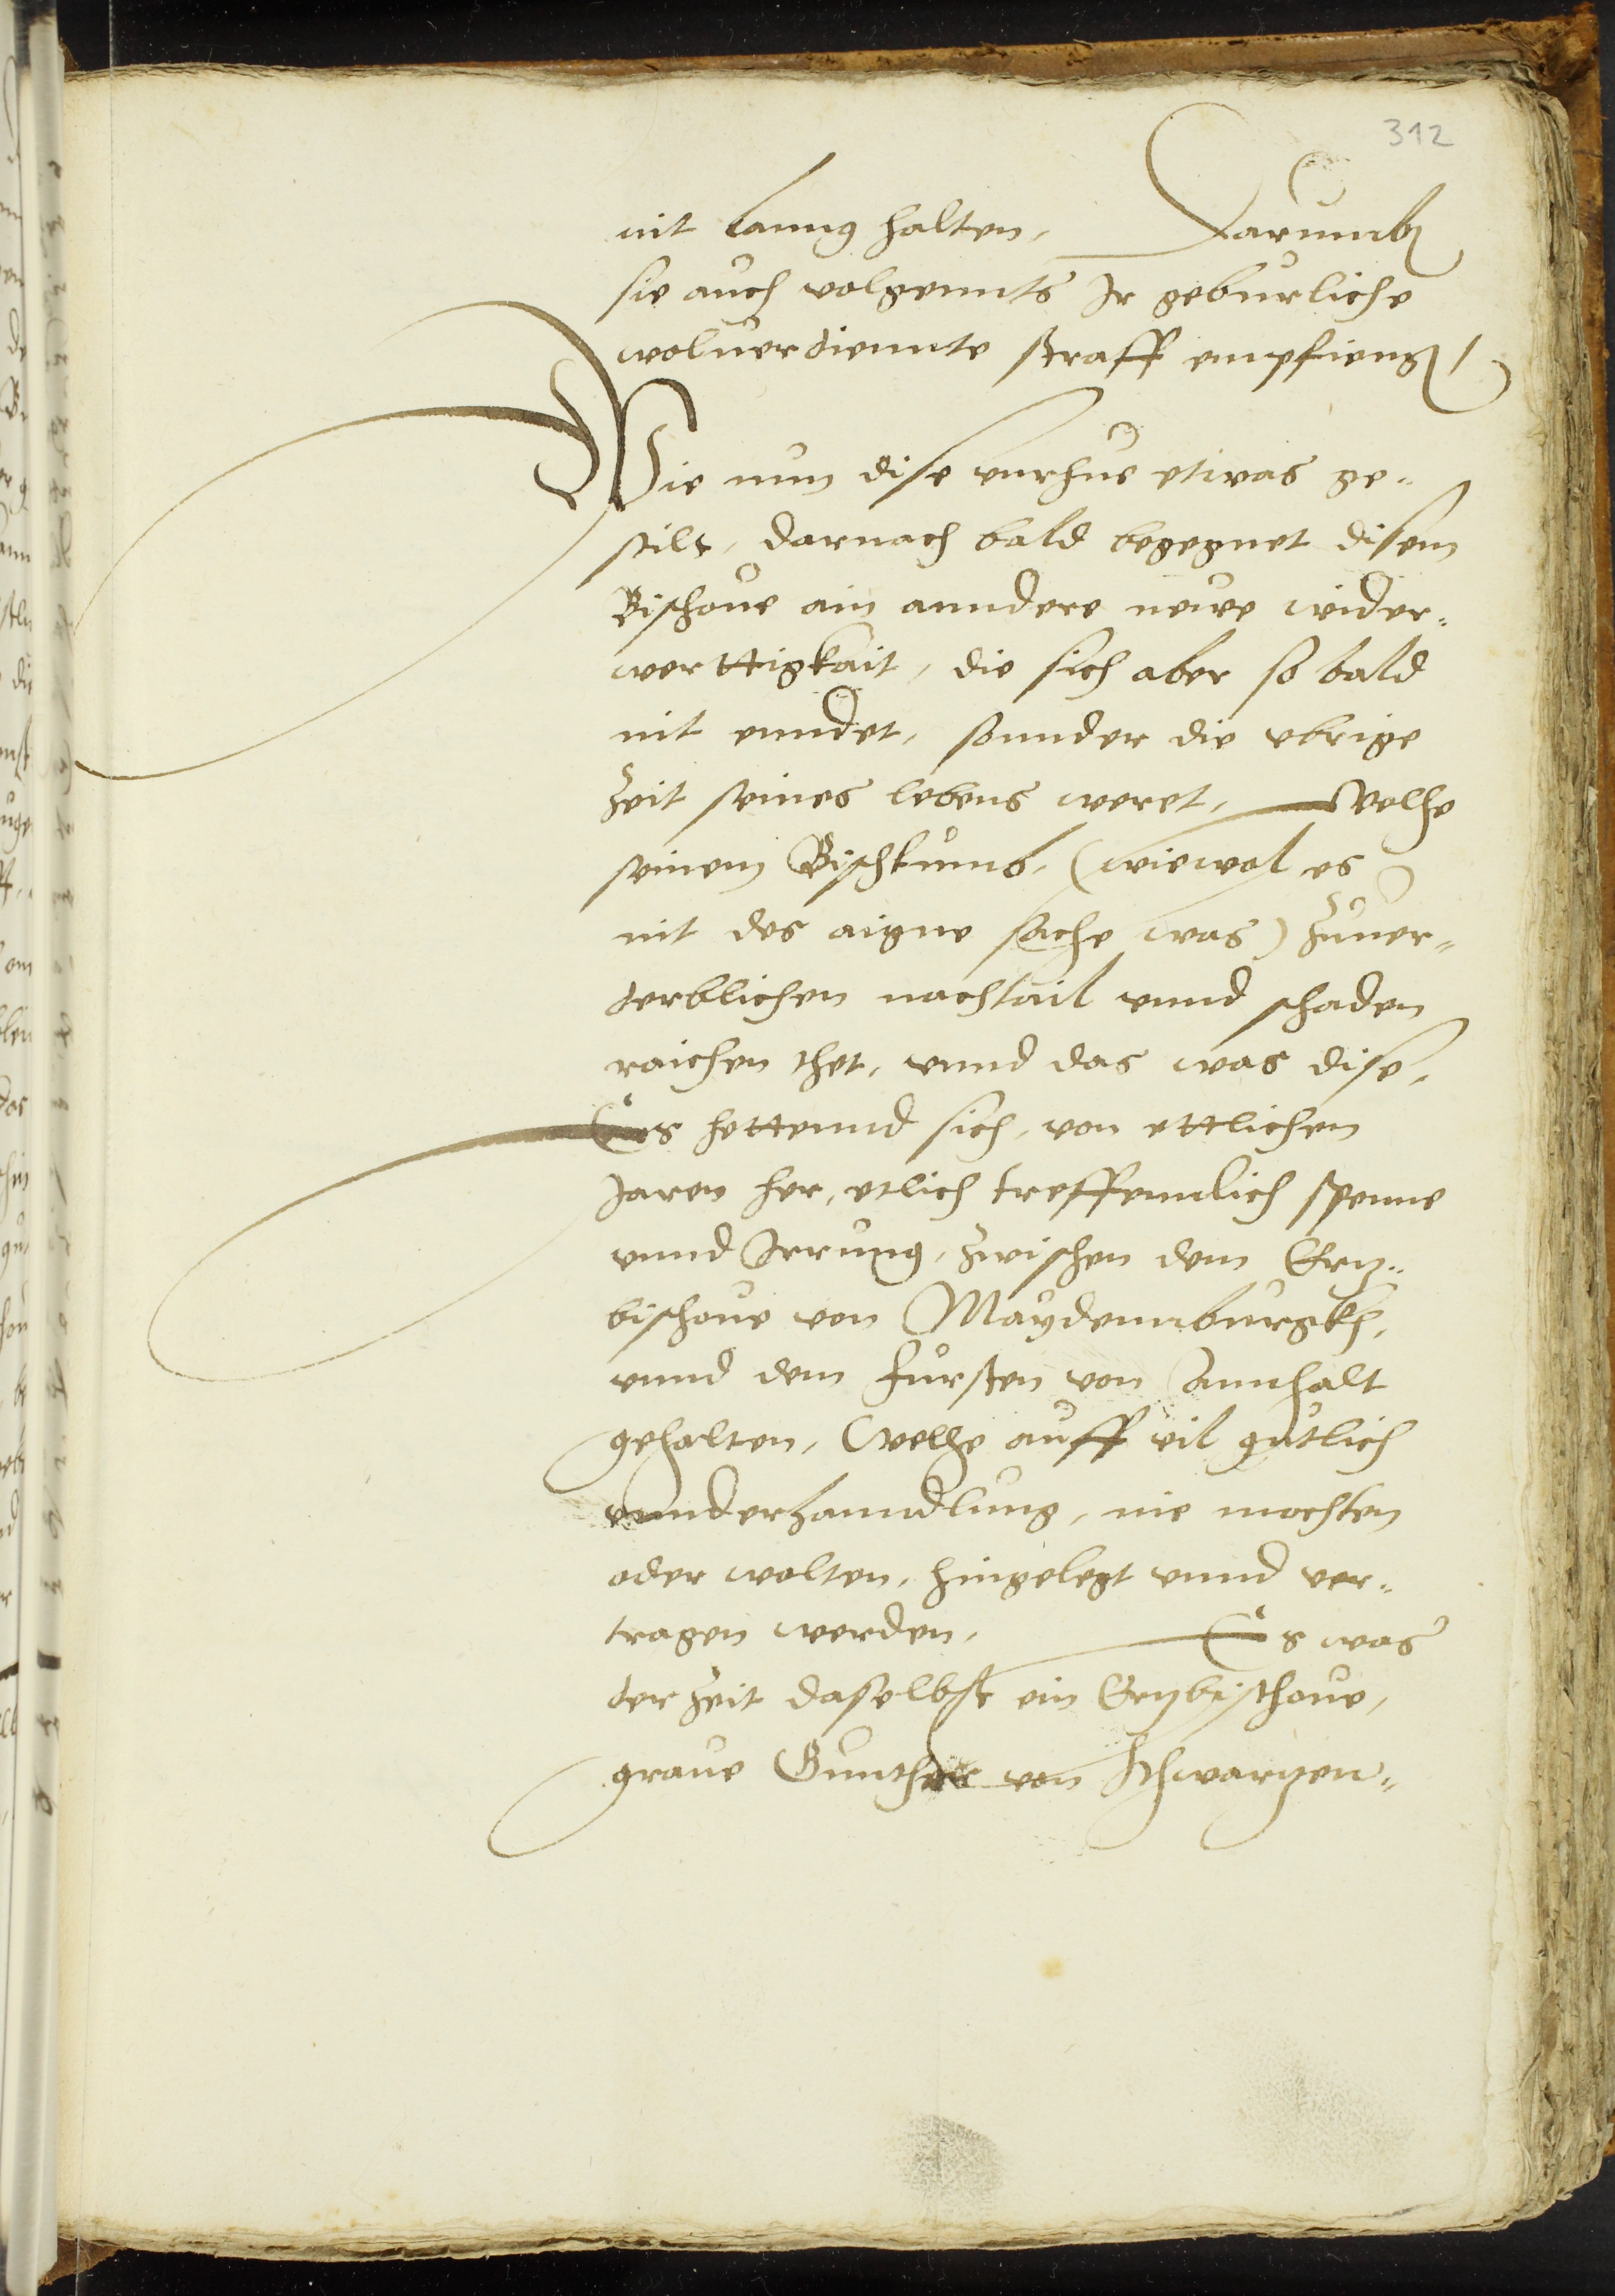 312
nit lanng halten, Darumb
sie auch volgennts Ir geburliche
woluerdiennte straff empfieng
Wie nun dise vnrhue etwas ge-
stilt, darnach bald begegnet disem
Bischoue ain anndere newe wider-
werttigkait, die sich aber so bald
nit enndet, sonnder die vbrige
Zeit seines lebens weret, Welhe
seinem Bischtumb, (wiewol es
nit des aigne sache was) zuuer-
derblichen nachtail vnnd schaden
raichen thet, vnnd das was dise,
Es hettennd sich, von ettlichen
Jaren her, etlich treffennlich spenne
vnnd Irrung, zwischen dem Ertz-
bischoue von Maydennburgkh,
vnnd dem fürsten von Annhalt
gehalten, Welhe auff vil gütlich
vnnderhanndlung, nie mochten
oder wolten, hingelegt vnnd ver-
tragen werden, Es was
der Zeit daselbst ein Ertzbischoue,
graue Gunther von Schwartzen-